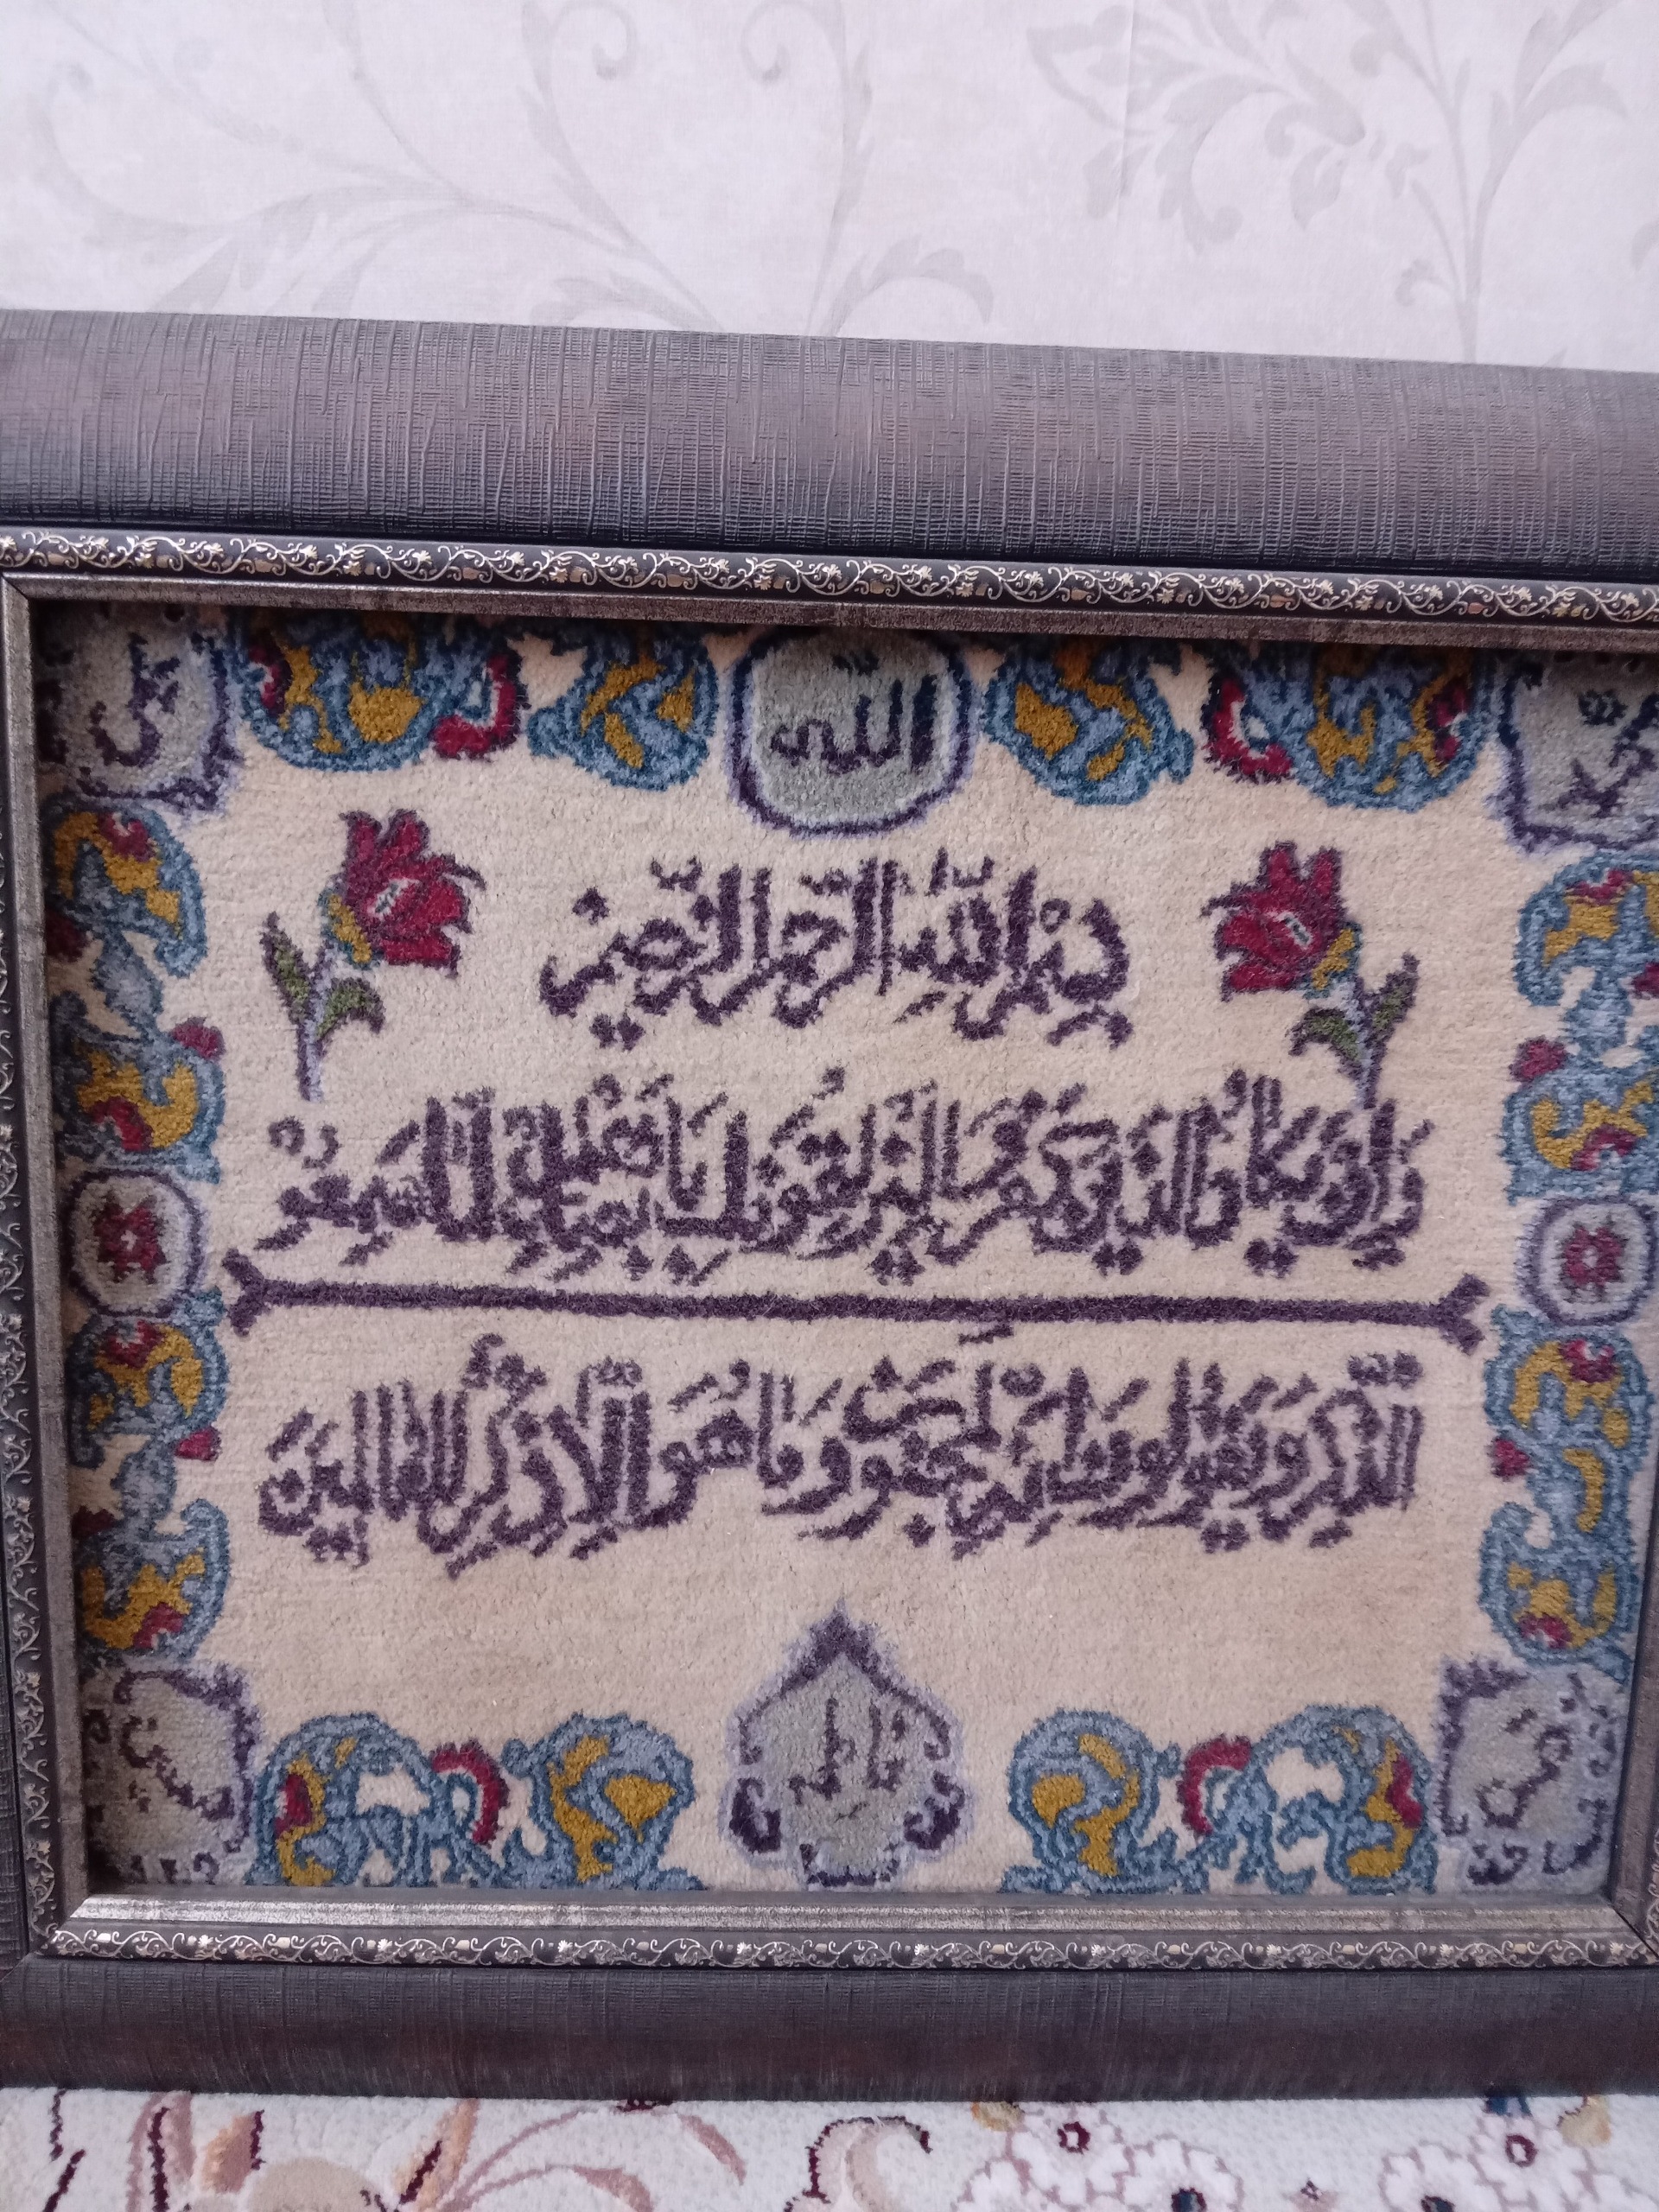 محمد الله علی
بِسْمِ اللَّهِ الرَّحْمٰنِ الرَّحِیمِ
وَاِنْ یَکادُ الَّذینَ کَفَروا لَیُزْلِقُونَکَ بِاَبْصارِهِمْ لَمّا سَمِعُوا
الذِّکْرَ وَ یَقُولُونَ اِنَّهُ لَمَجْنُونٌ وَ ما هُوَ اِلّا ذِکْرٌ لِلْعالَمینَ
حسن فاطمه حسین